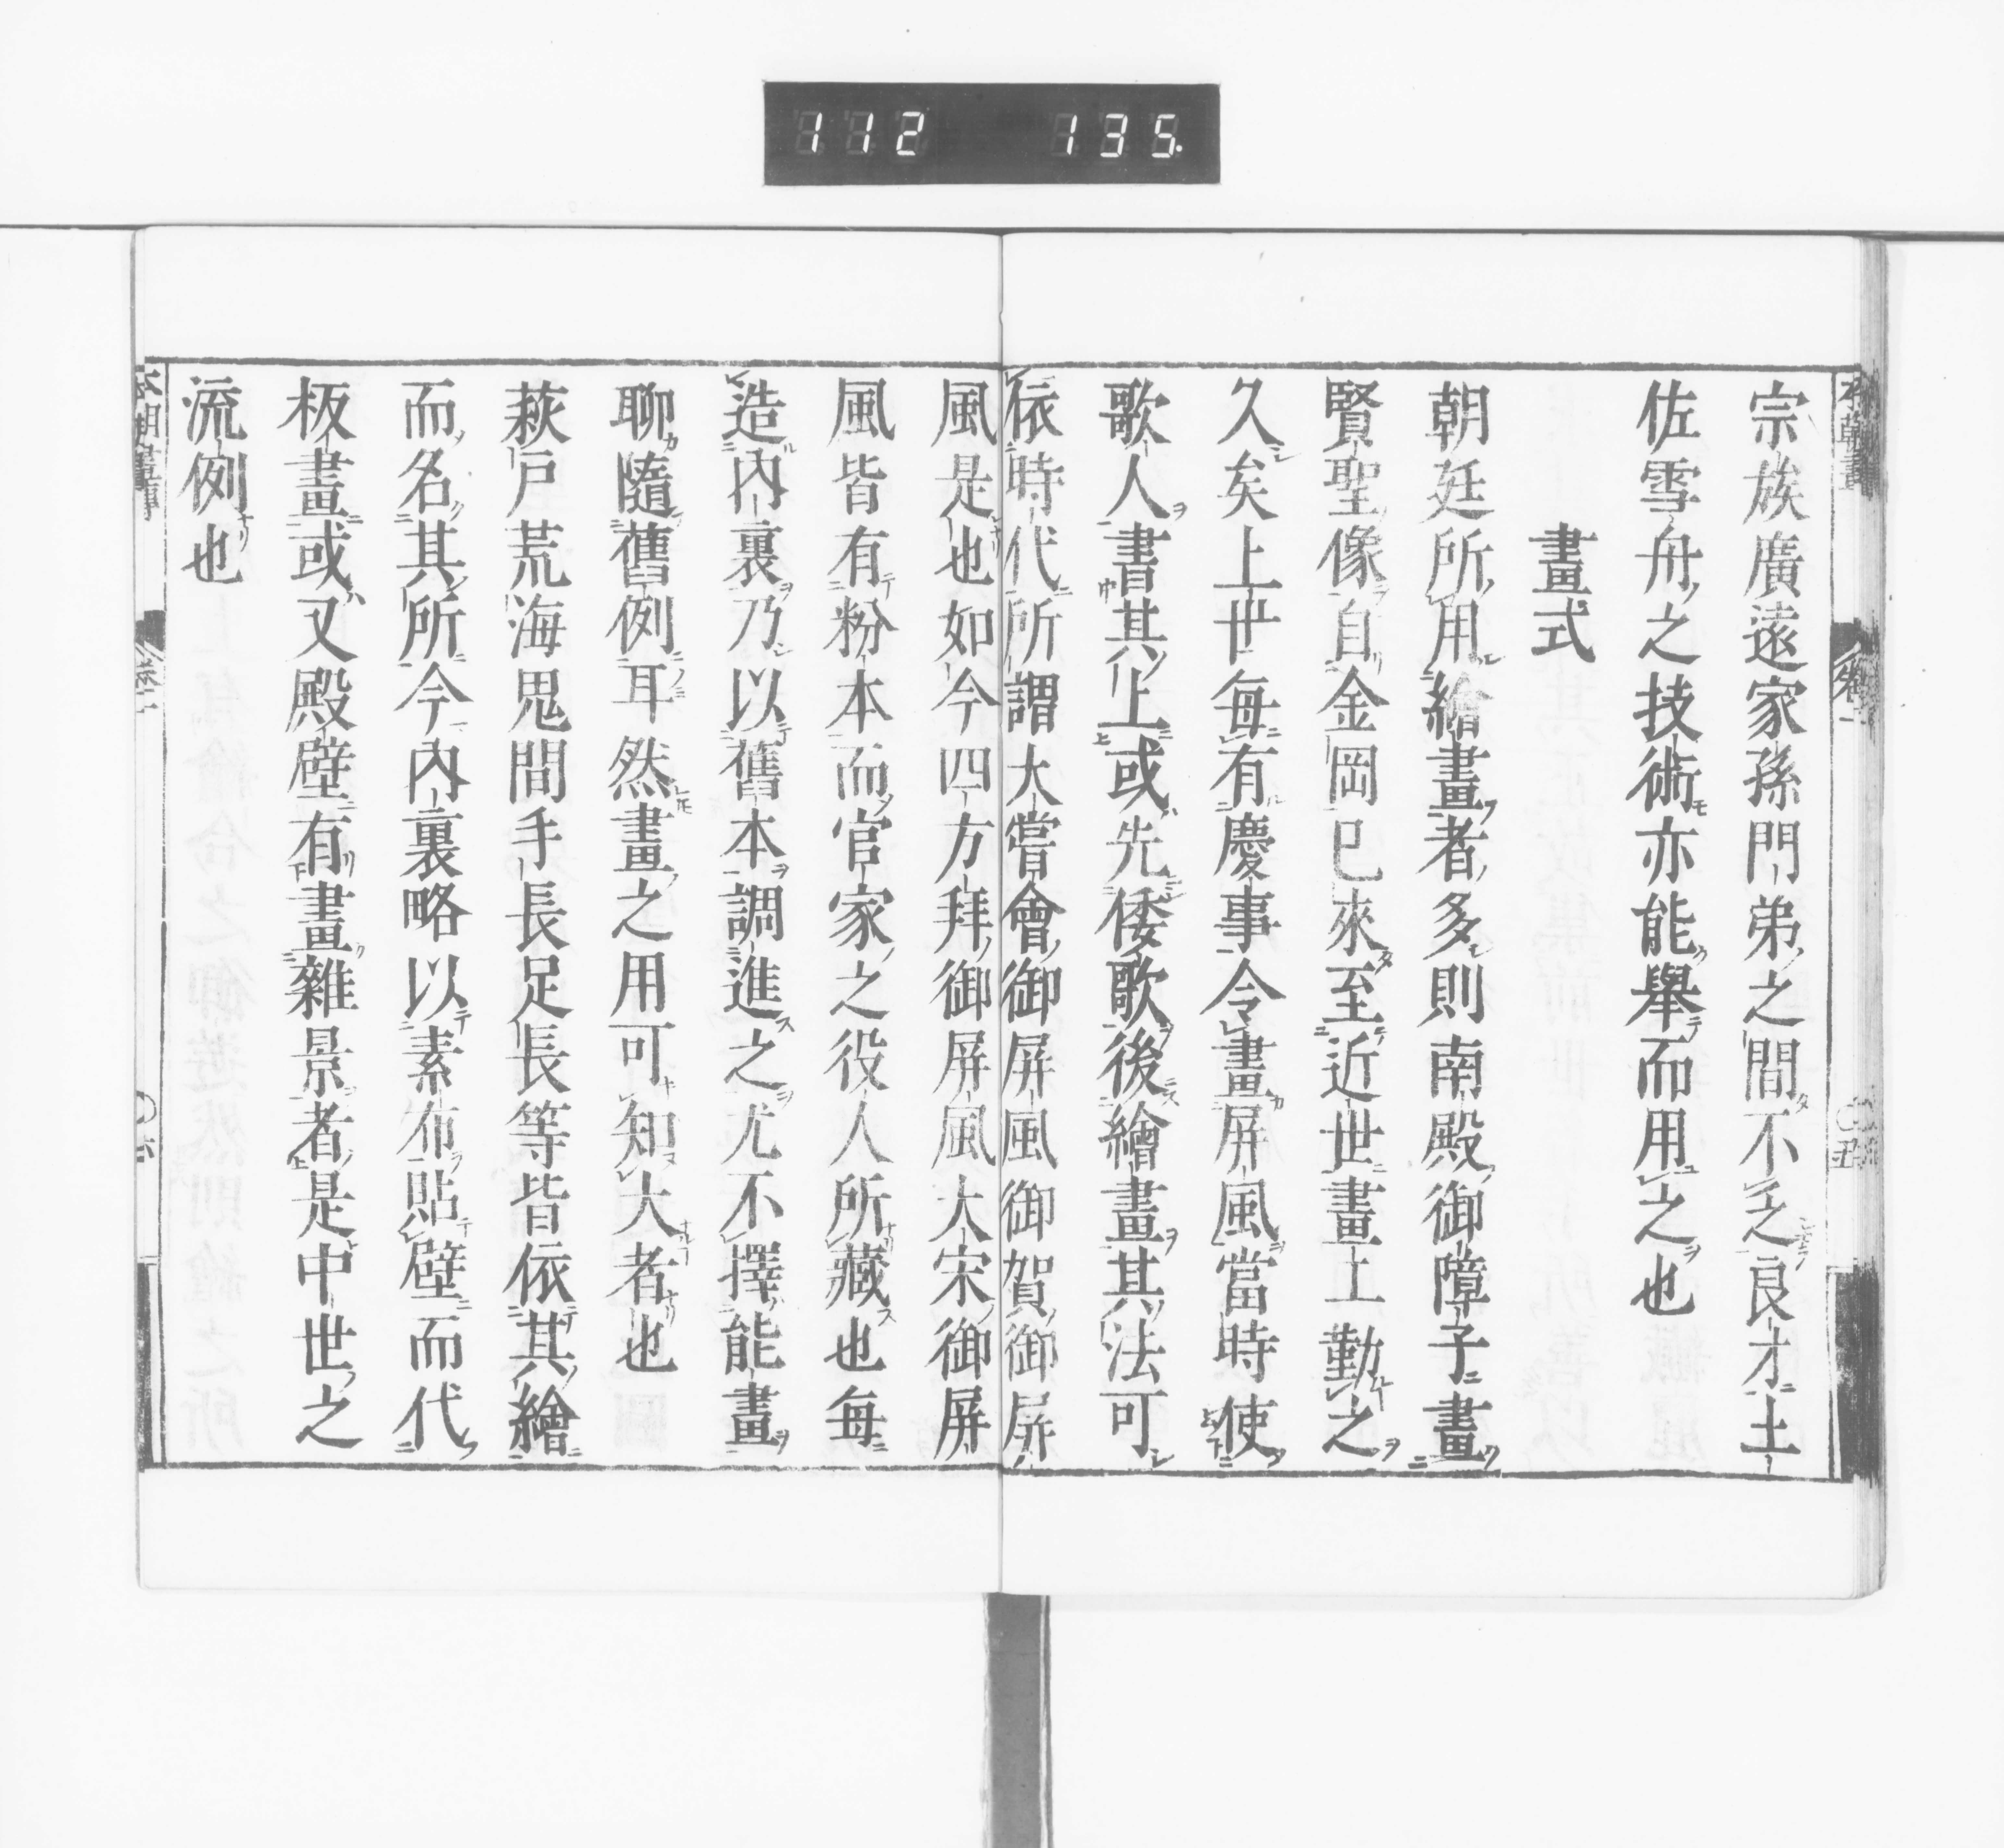 112 135.
宗族廣遠家孫門弟之間不乏良才土
佐雪舟之技術亦能舉而用之也
畫式
朝廷所用繪畫者多則南殿御障子畫
賢聖像自金岡已來至近世畫工勤之
久矣上世每有慶事令畫屏風當時使
歌人書其上或先倭歌後繪畫其法可
依時代所謂大嘗會御屏風御賀御屏
風是也如今四方拜御屏風大宋御屏
風皆有粉本而官家之役人所藏也每
造內裏乃以舊本調進之尤不擇能畫
聊隨舊例耳然畫之用可知大者也
萩戸荒海鬼間手長足長等皆依其繪
而名其所今內裏略以素布貼壁而代
板畫或又殿壁有畫雜景者是中世之
流例也